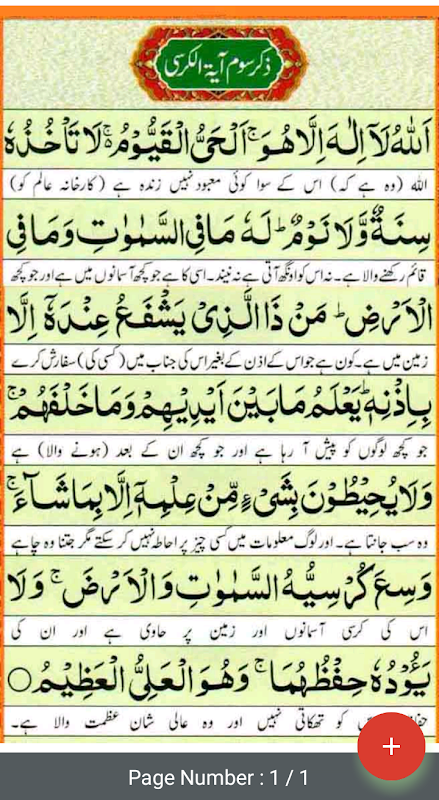 ذکر سوم آیة الکرسی
اَللّٰهُ لَاۤ اِلٰهَ اِلَّا هُوَۚ اَلْحَیُّ الْقَیُّوْمُ۬ۚ لَا تَاْخُذُهٗ
اللہ (وہ ہے کہ) اس کے سوا کوئی معبود نہیں زندہ ہے (کارخانہ عالم کو)
سِنَةٌ وَّ لَا نَوْمٌؕ لَهٗ مَا فِی السَّمٰوٰتِ وَ مَا فِی
قائم رکھنے والا ہے۔ نہ اس کو اونگھ آتی ہے نہ نیند۔ اسی کا ہے جو کچھ آسمانوں میں ہے اور جو کچھ
الْاَرْضِؕ مَنْ ذَا الَّذِیْ یَشْفَعُ عِنْدَهٗۤ اِلَّا
زمین میں ہے۔ کون ہے جو اس کے اذن کے بغیر اس کی جناب میں (کسی کی) سفارش کرے
بِاِذْنِهٖؕ یَعْلَمُ مَا بَیْنَ اَیْدِیْهِمْ وَ مَا خَلْفَهُمْۚ
جو کچھ لوگوں کو پیش آ رہا ہے اور جو کچھ ان کے بعد (ہونے والا) ہے
وَ لَا یُحِیْطُوْنَ بِشَیْءٍ مِّنْ عِلْمِهٖۤ اِلَّا بِمَا شَآءَۚ
وہ سب جانتا ہے۔ اور لوگ معلومات میں کسی چیز پر احاطہ نہیں کر سکتے مگر جتنا وہ چاہے
وَسِعَ كُرْسِیُّهُ السَّمٰوٰتِ وَ الْاَرْضَۚ وَ لَا
اس کی کرسی آسمانوں اور زمین پر حاوی ہے اور ان کی
یَـُٔوْدُهٗ حِفْظُهُمَاۚ وَ هُوَ الْعَلِیُّ الْعَظِیْمُ ○
کو تھکاتی نہیں اور وہ عالی شان عظمت والا ہے۔
Page Number : 1 / 1
+